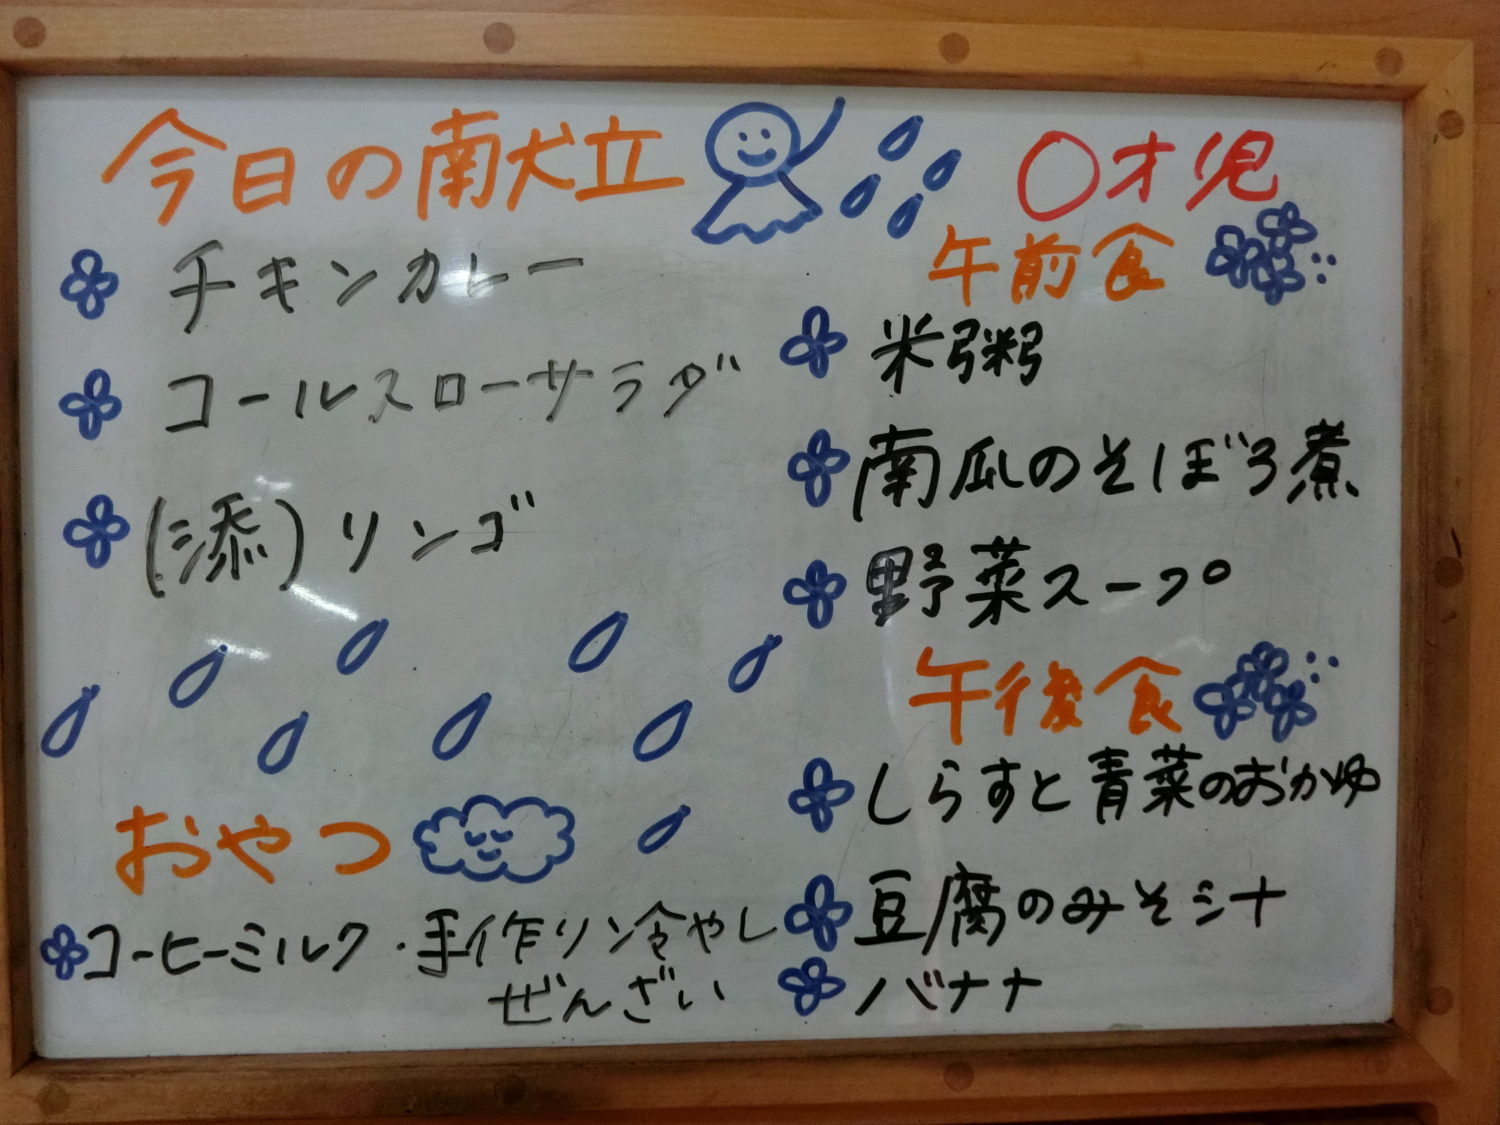 今日の献立
チキンカレー
コールスローサラダ
(添)リンゴ
おやつ
コーヒーミルク・手作リン冷やし
ぜんざい
〇才児
午前食
米粥
南瓜のそぼろ煮
野菜スープ
午後食
しらすと青菜のおかゆ
豆腐のみそ汁
バナナ